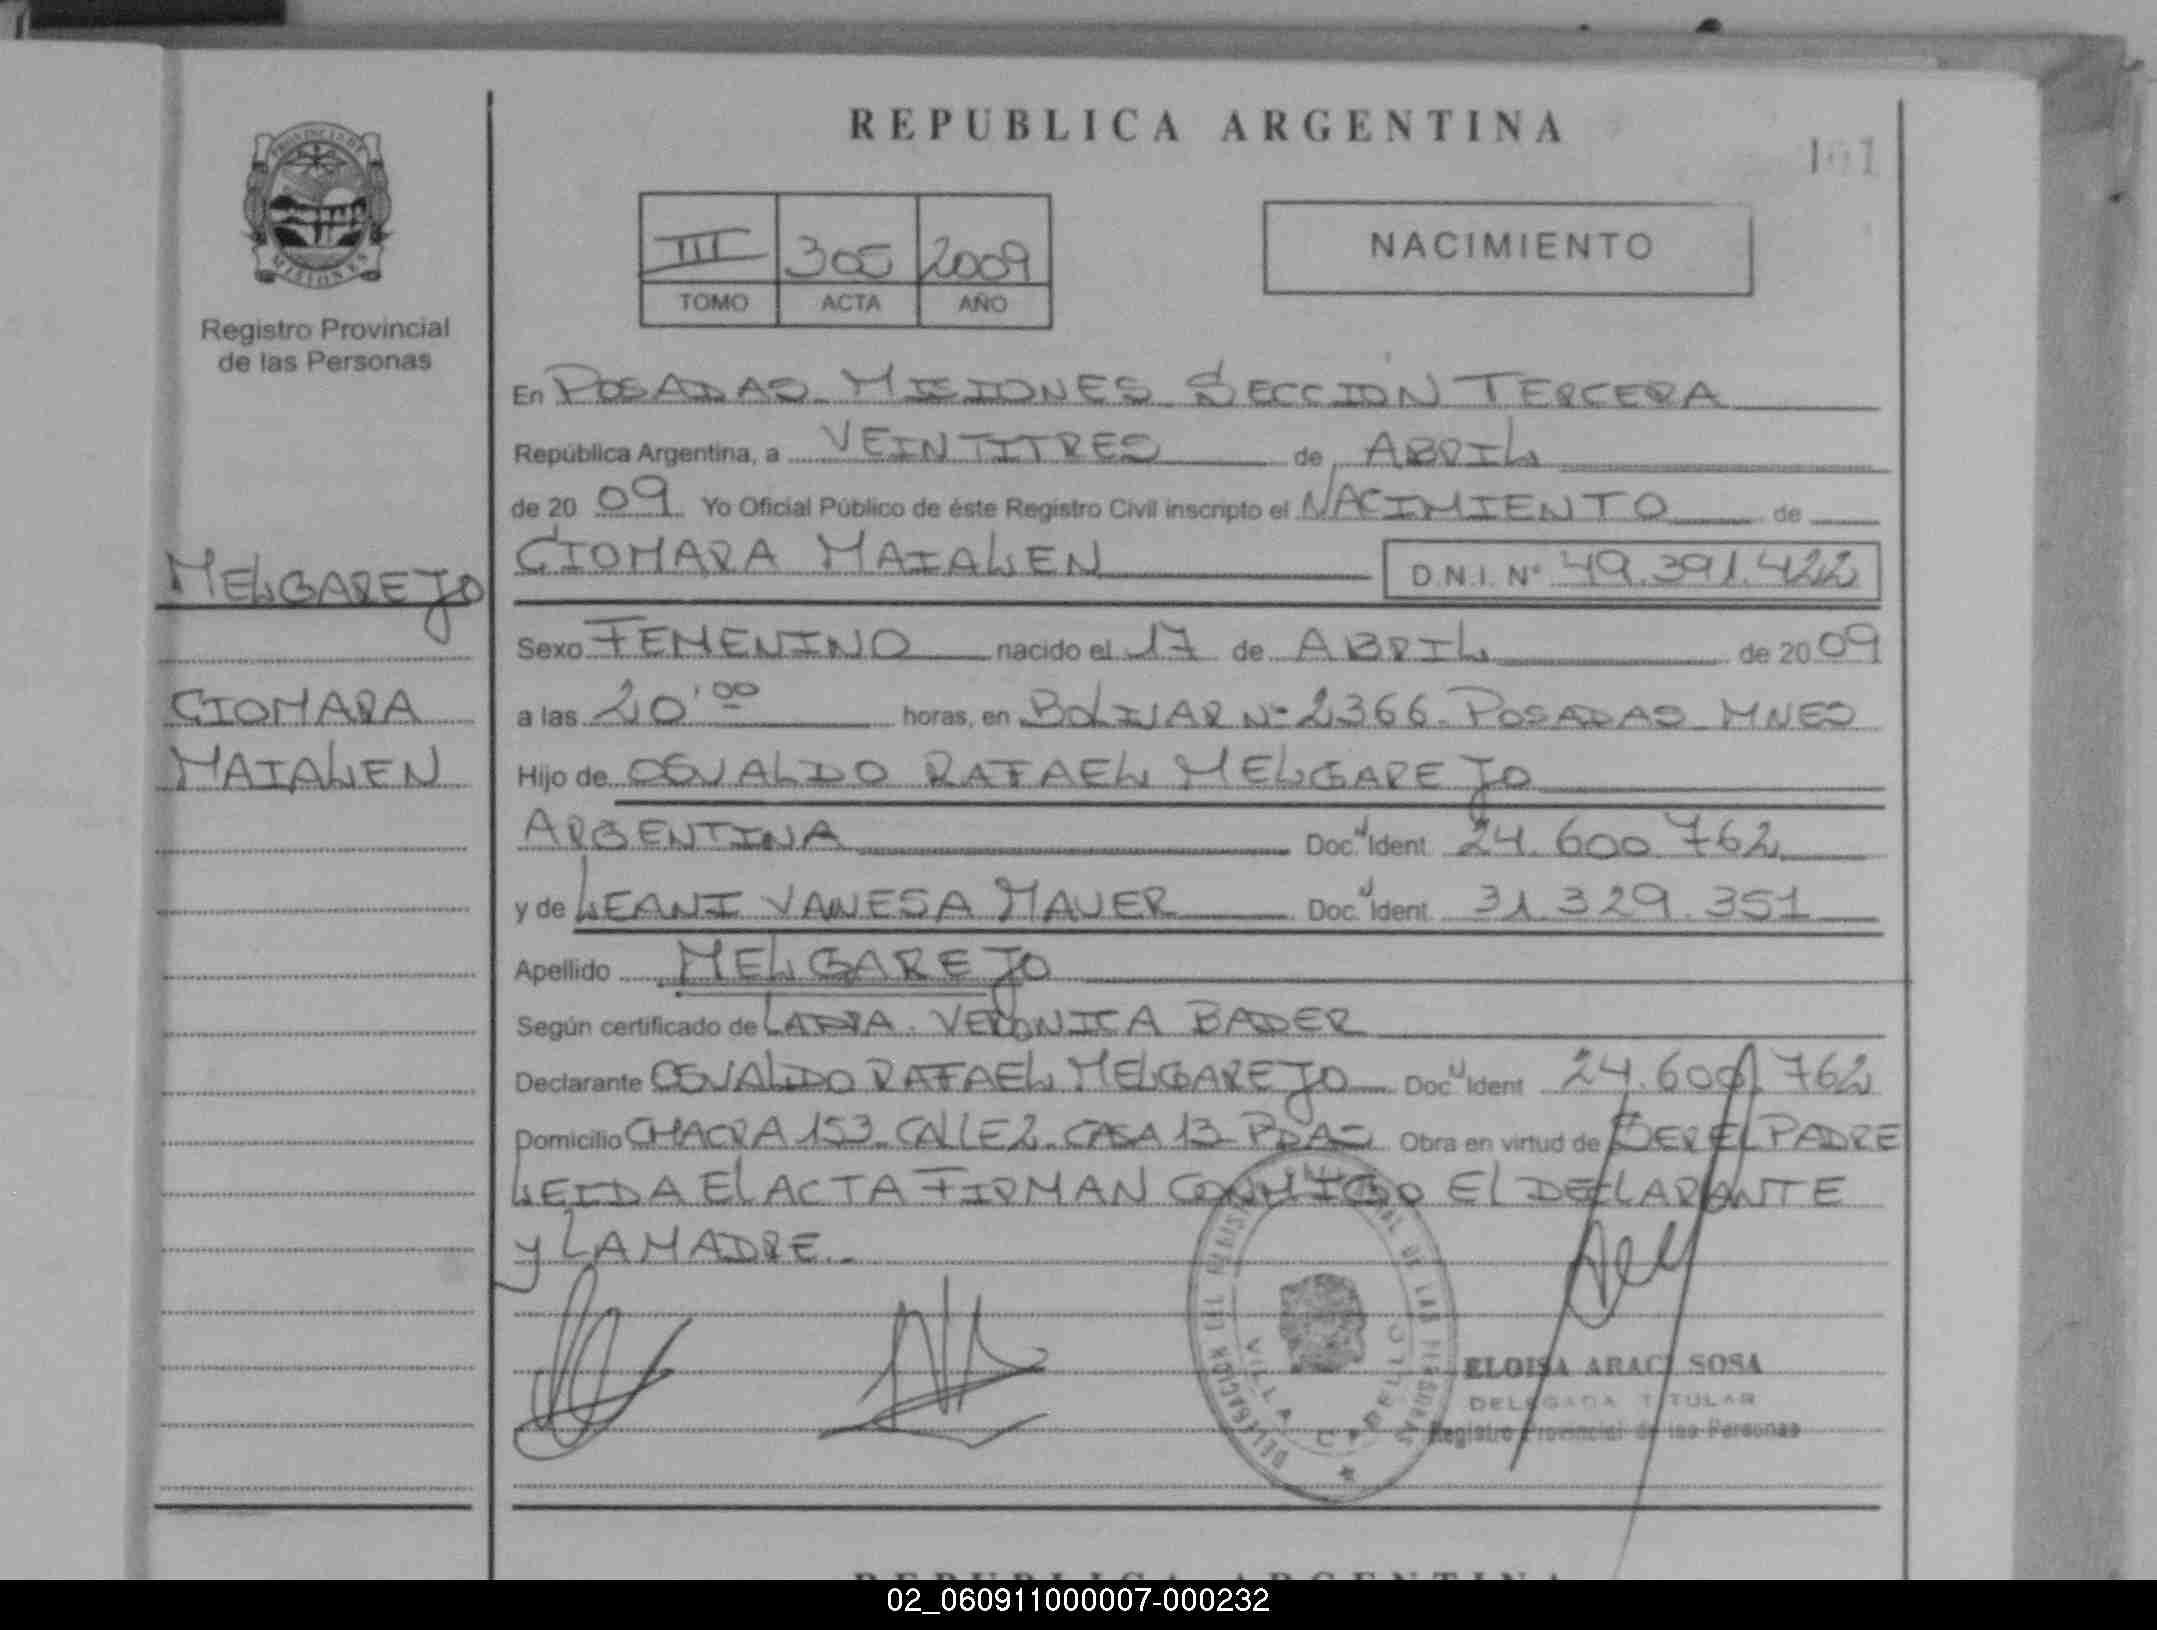 REPUBLICA ARGENTINA
101
PROVINCIA DE
MISIONES
Registro Provincial
de las Personas
III 305 2009
TOMO ACTA AÑO
NACIMIENTO
En POSADAS MISIONES SECCION TERCERA
República Argentina, a VEINTITRES de ABRIL
de 20 09 Yo Oficial Público de éste Registro Civil inscripto el NACIMIENTO de
CIOMARA MAIALEN D.N.I. Nº 49.391.422
MELGAREJO
Sexo FEMENINO nacido el 17 de ABRIL de 20 09
CIOMARA
a las 20'00 horas, en BOLIVAR Nº 2366 POSADAS MNES
MAIALEN
Hijo de OSVALDO RAFAEL MELGAREJO
ARGENTINA Doc. Ident 24.600.762
y de LEANI VANESA MAUER Doc. Ident 31.329.351
Apellido MELGAREJO
Según certificado de LA DRA. VERONICA BADER
Declarante OSVALDO RAFAEL MELGAREJO Doc Ident 24.600.762
Domicilio CHACRA 153 CALLE 2 CASA 13 PDAS Obra en virtud de SER EL PADRE
LEIDA EL ACTA FIRMAN CONMIGO EL DECLARANTE
y LA MADRE.
DELEGACION DEL REGISTRO PROVINCIAL DE LAS PERSONAS
VILLA CABELLO
ELOISA ARACI SOSA
DELEGADA TITULAR
Registro Provincial de las Personas
REPUBLICA ARGENTINA
02_060911000007-000232